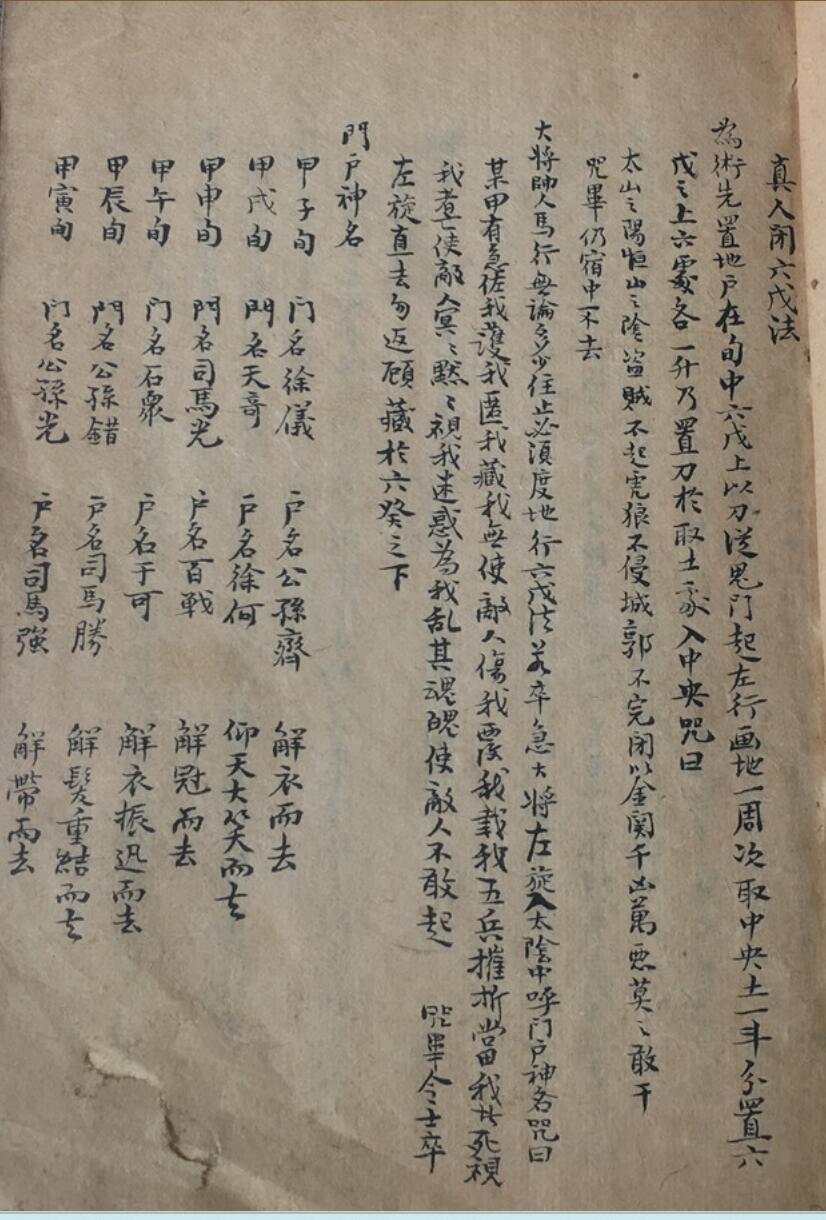 真人闭六戊法
為術先置地户在旬中六戊上以刀從鬼门起左行画地一周次取中央土一斗分置六
戊之上六處各一升乃置刀於取土處入中央咒曰
太山之陽恒山之陰盗賊不起虎狼不侵城郭不完闭以金関千凶萬惡莫之敢干
咒畢仍宿中不去
大将帥人馬行無論多少住止必須度地行六戊法若卒急大将左旋入太陰中呼门户神名咒曰
某甲有急佐我護我匿我藏我無使敵人傷我覆我載我五兵摧折當我者死視
我者亡使敵人冥〻黙〻視我迷惑為我乱其魂魄使敵人不敢起 咒畢令士卒
左旋直去勿返顾藏於六癸之下
門户神名
甲子旬 门名徐儀 户名公孫齊 解衣而去
甲戌旬 門名天哥 户名徐何 仰天大笑而去
甲申旬 門名司馬光 户名百戦 解冠而去
甲午旬 门名石衆 户名于可 解衣振迅而去
甲辰旬 門名公孫錯 户名司馬勝 解髮重結而去
甲寅旬 门名公孫光 户名司馬強 解帶而去